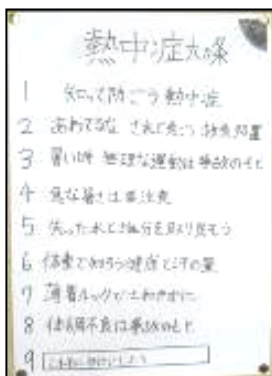 熱中症九ヶ条
1 知って防ごう熱中症
2 あわてるな されど急ごう 救急処置
3 暑い時 無理な運動は事故のもと
4 急な暑さは要注意
5 失った水と塩分を取り戻そう
6 体重で知ろう健康と汗の量
7 薄着ルックでさわやかに
8 体調不良は事故のもと
9